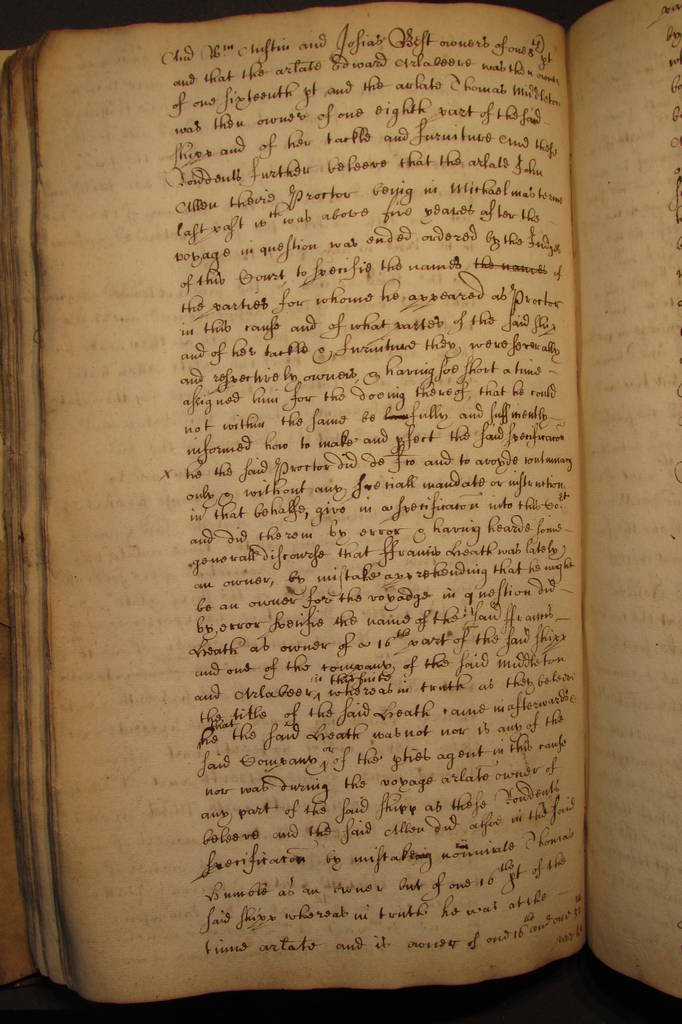 And Wm Austin and Josias Best owners of one 16th pt
and that the arlate Edward Arlabeere was then owner
of one sixteenth pt and the arlate Thomas Middleton
was then owner of one eighth part of the said
shipp and of her tackle and furniture And these
Rondents further beleeve that the arlate John
Allen theire Proctor being in Michaelmas terme
last past wch was above five yeares after the
voyage in question was ended ordered by the Judge
of this Court to specifie the names the names of
the parties for whome he appeared as Proctor
in this cause and of what partes of the said shipp
and of her tackle & furniture they were severally
and respectively owners, & having soe short a time
assigned him for the doeing thereof, that he could
not within the same be fully and sufficiently
informed how to make and pfect the said specificacon
he the said Proctor did de fco and to avoyde contumacy
only & without any speciall mandate or instruction
in that behalfe, give in a specificacon into this Cort
and did therein by error & having hearde some
generall discourse that ffrancis Heath was lately
an owner, by mistake apprehending that he might
be an owner for the voyadge in question did
by error specifie the name of the said ffrancis
Heath as owner of a 16th part of the said shipp
and one of the company of the said Middleton
and Arlabeer, in this suite whereas in truth as they beleeve
the title of the said Heath came in afterwards &
that the said Heath was not nor is any of the
said Company or of the pties agent in this cause
nor was during the voyage arlate owner of
any part of the said shipp as these Rondents
beleeve and the said Allen did alsoe in the said
specificacon by mistakeing nominate Thomas
Humble as an owner but of one 16th pt of the
said shipp whereas in truth he was at the
time arlate and is owner of one 16th and one 32
X